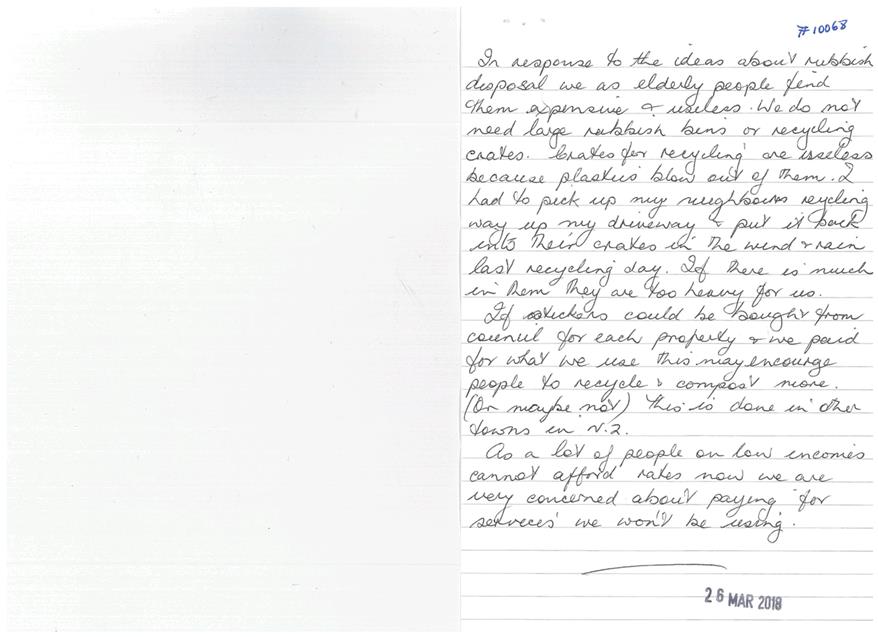 #10068
In response to the ideas about rubbish
disposal we as elderly people find
them expensive & useless. We do not
need large rubbish bins or recycling
crates. Crates for recycling are useless
because plastics blow out of them. I
had to pick up my neighbours recycling
way up my driveway & put it back
into their crates in the wind & rain
last recycling day. If there is much
in them they are too heavy for us.
If stickers could be bought from
council for each property & we paid
for what we use this may encourage
people to recycle & compost more.
(Or maybe not) This is done in other
towns in N.Z.
As a lot of people on low incomes
cannot afford rates now we are
very concerned about paying for
services we won't be using.
26 MAR 2018